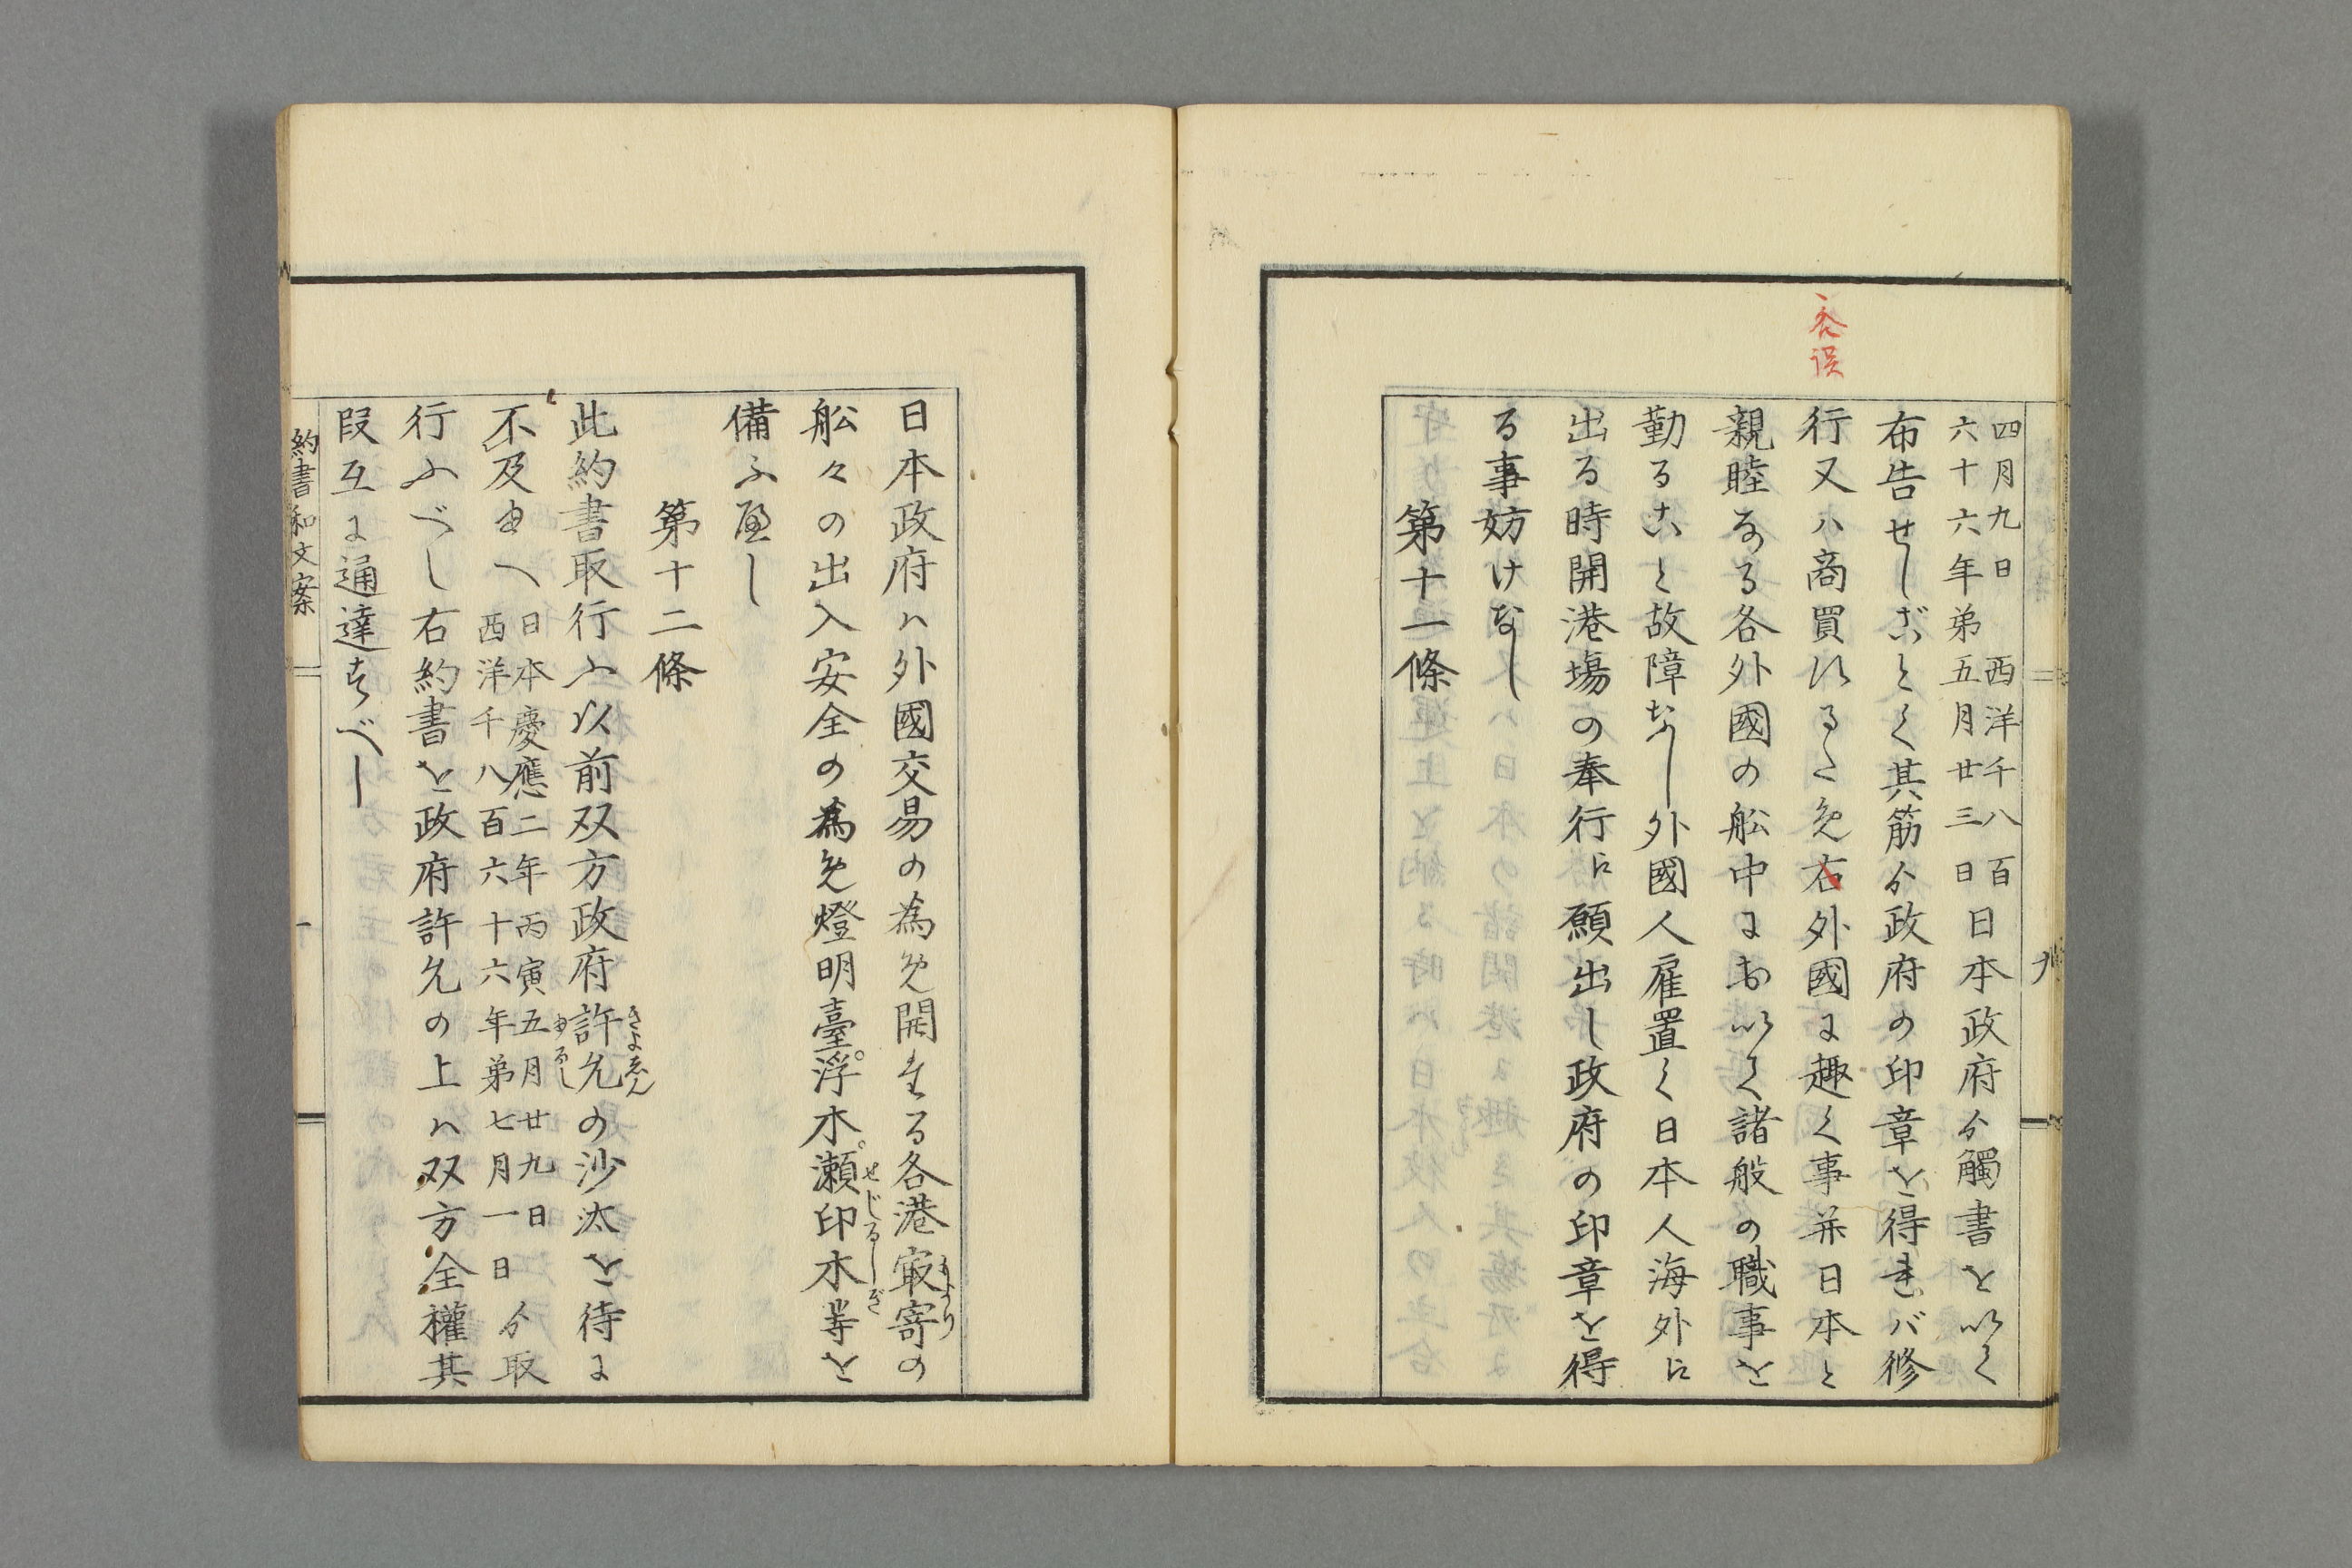 衍誤
四月九日　西洋千八百
六十六年第五月廿三日
日本政府ゟ觸書を以て
布告せしごとく其筋ゟ政府の印章を得れバ修
行又ハ商買するため右外國に趣く事并日本と
親睦なる各外國の舩中におゐて諸般の職事を
勤ること故障なし外國人雇置く日本人海外に
出る時開港塲の奉行に願出し政府の印章を得
る事妨けなし
第十一條
九
日本政府ハ外國交易の為め開きたる各港㝡寄の
もより
舩々の出入安全の為め燈明臺浮木瀬印木等を
せじるしぎ
備ふべし
第十二條
此約書取行ふ以前双方政府許允の沙汰を待に
きよゐん
ゆるし
不及由へ
日本慶應二年丙寅五月廿九日
西洋千八百六十六年第七月一日
ゟ取
行ふべし右約書を政府許允の上ハ双方全權其
段互に通達すべし
約書和文案
十